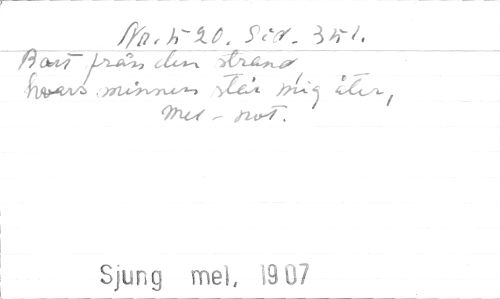 No. 520. Sid. 351.
Bort från den strand
hvars minnen står mig åter,
mel - not.
Sjung mel, 1907